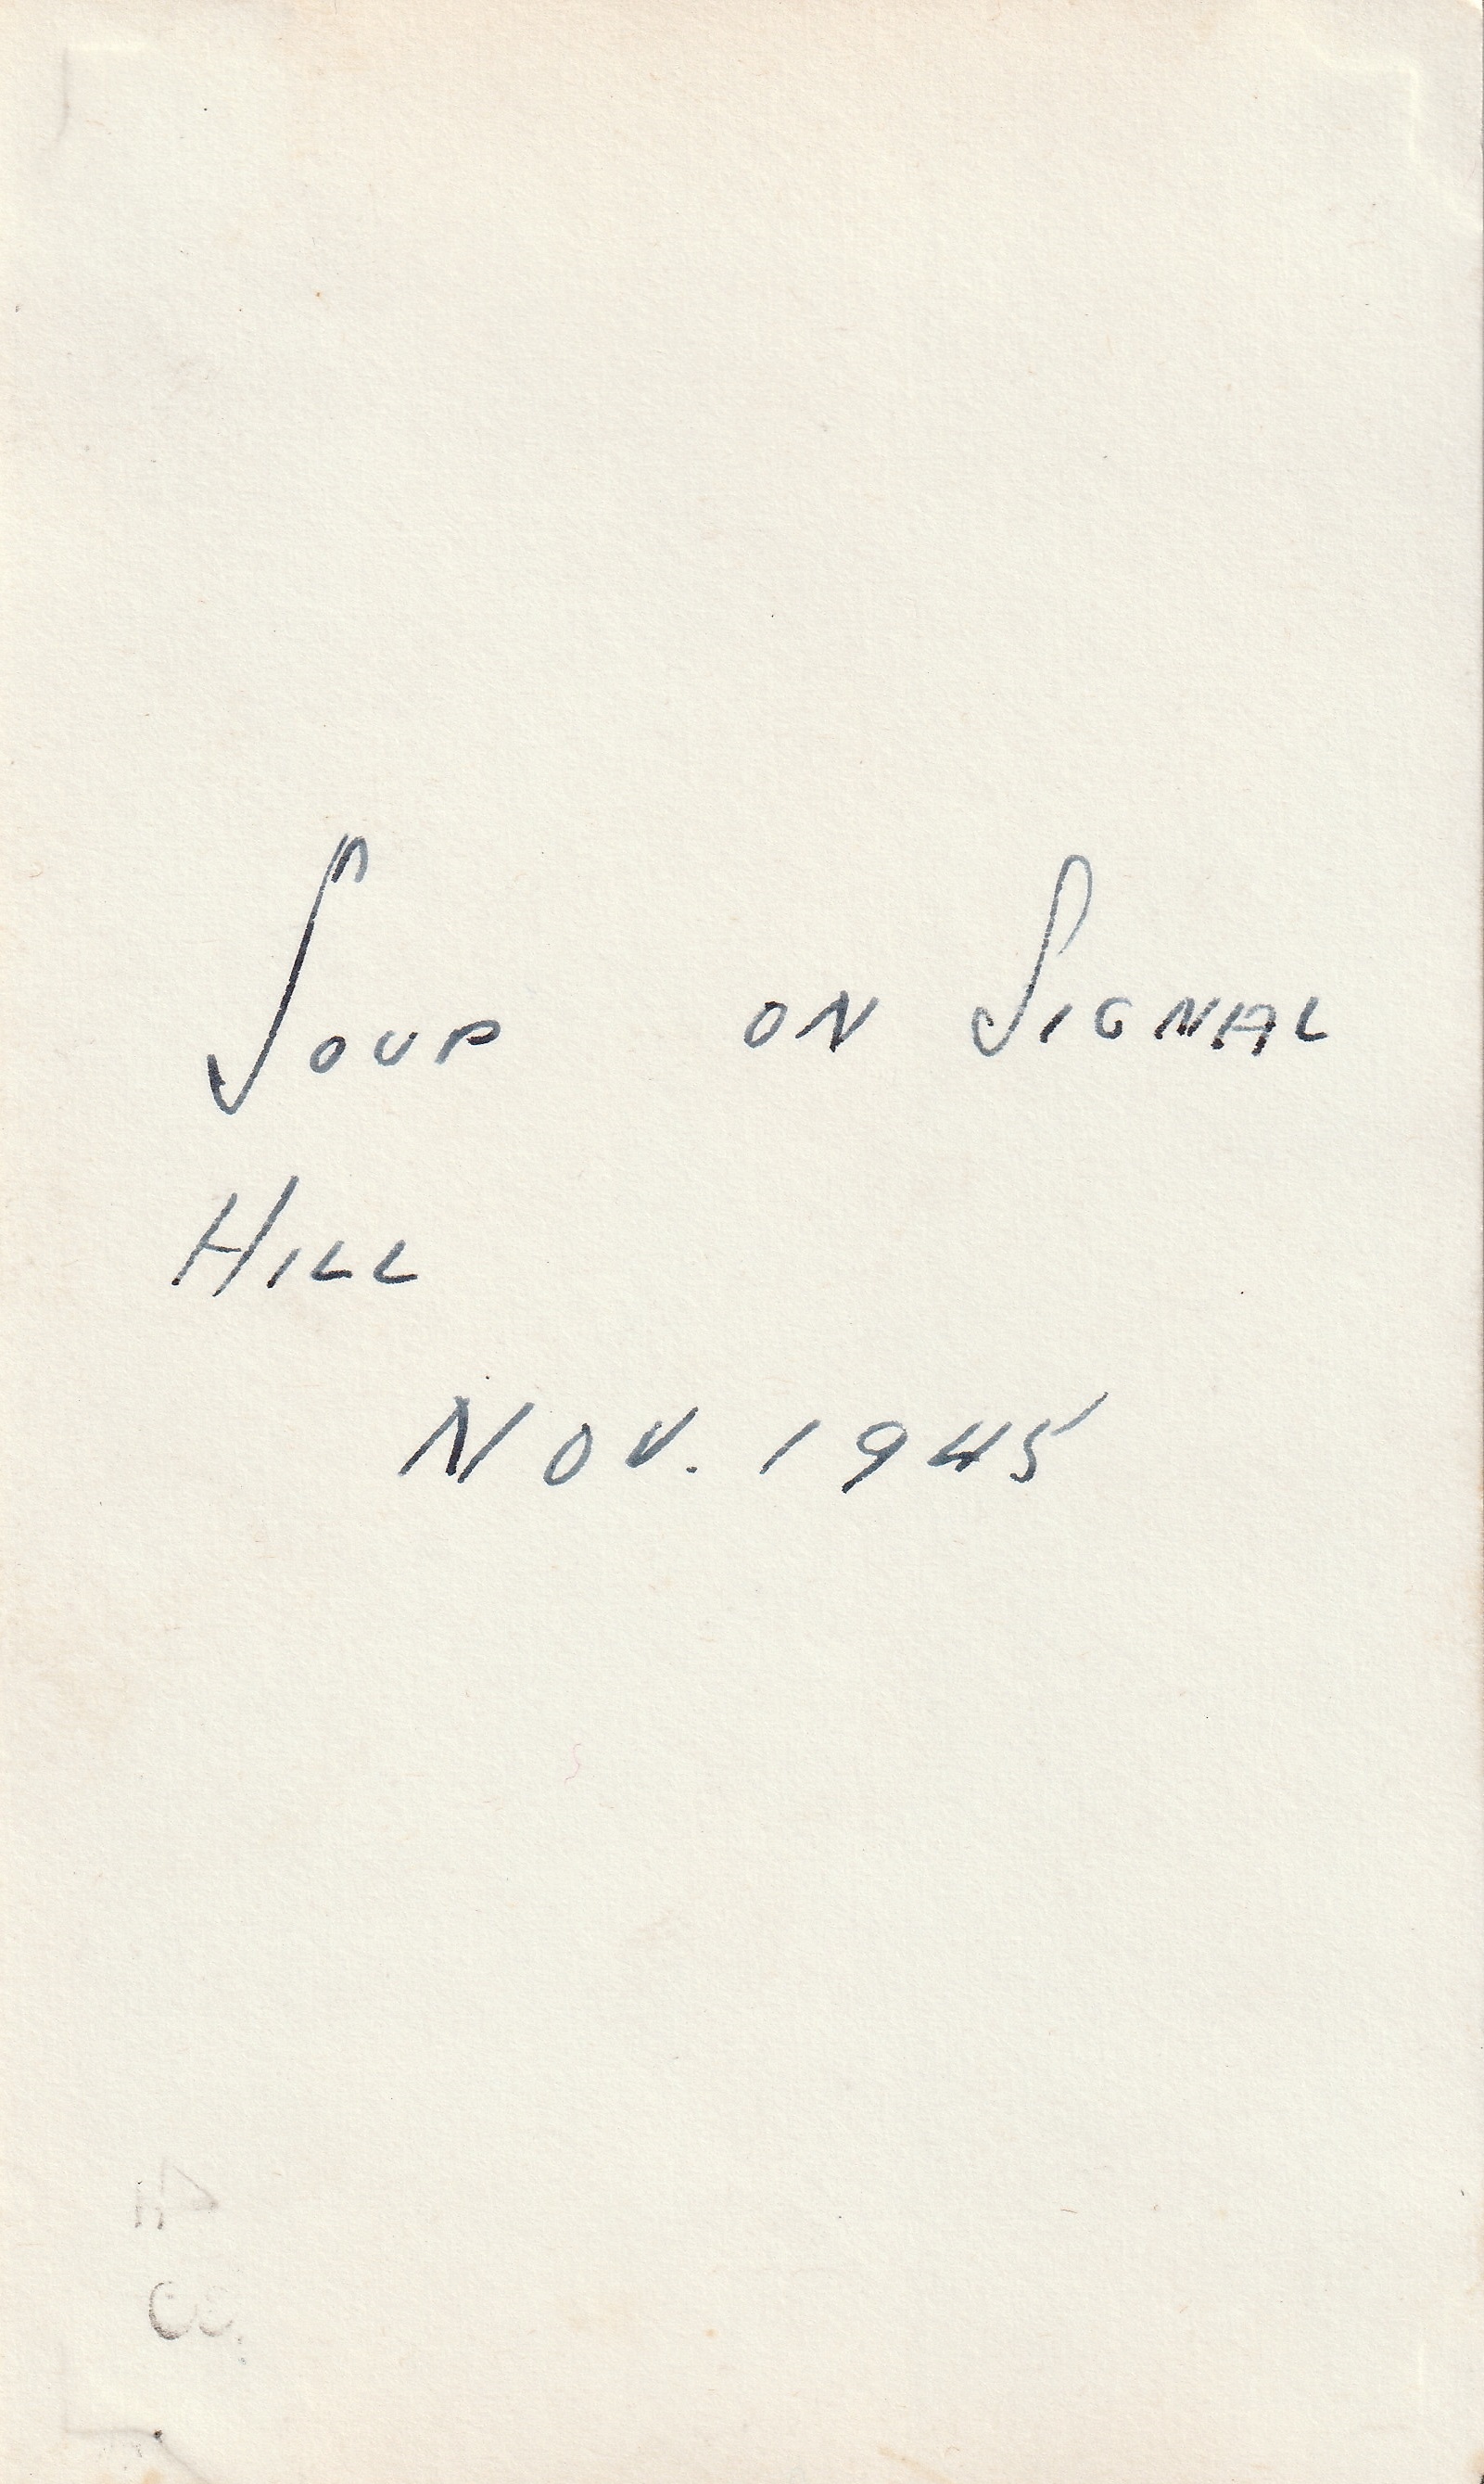 Soup on Signal
Hill
Nov. 1945